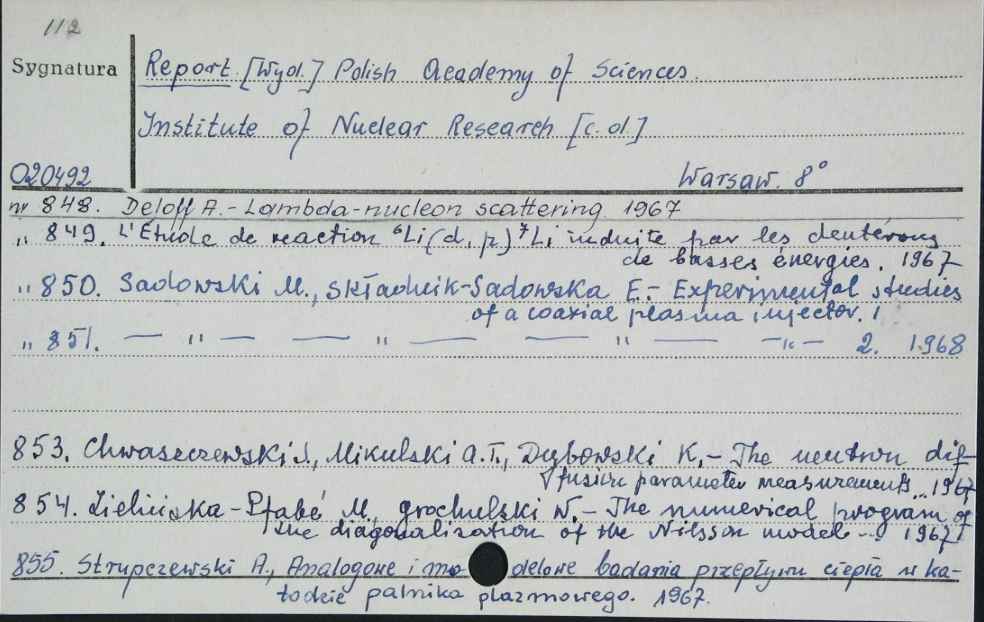 112
Sygnatura
Report [Wyd.] Polish Academy of Sciences.
Institute of Nuclear Research [c.d.]
020492
Warsaw. 8°
nr 848. Deloff A.- Lambda-nucleon scattering. 1967
„ 849. L'Étude de reaction ⁶Li(d, p)⁷Li induite par les deutérons
de basses énergies. 1967
„ 850. Sadowski M., Składnik-Sadowska E.- Experimental studies
of a coaxial plasma injector. 1
„ 851. — „ — — „ — — „ — — „ — 2. 1968
853. Chwaszczewski S., Mikulski A.T., Dąbowski K.- The neutron dif-
fusion parameter measurements... 1967
854. Zielińska-Pfabé M., Grochulski W.- The numerical program of
the diagonalization of the Nilsson model... 1967
855. Strupczewski A., Analogowe i modelowe badania przepływu ciepła w ka-
todzie palnika plazmowego. 1967.